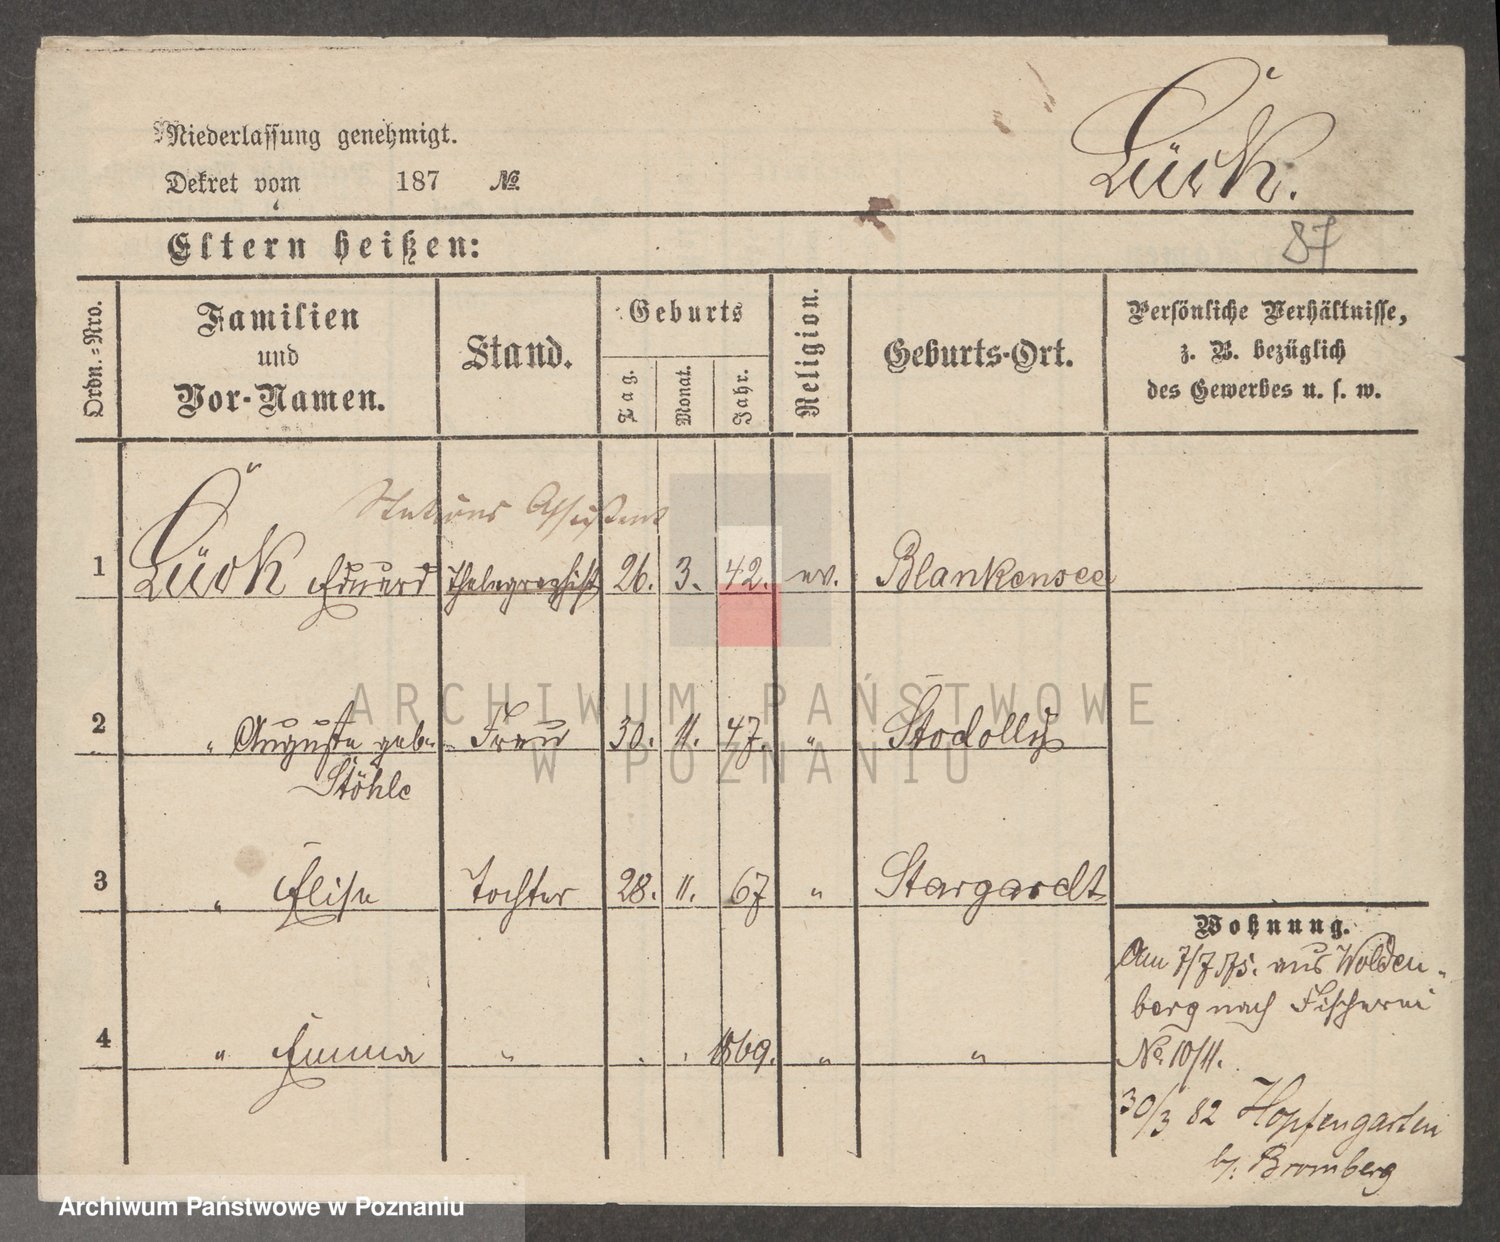 Niederlassung genehmigt.
Lück.
Dekret vom 187 №
87
Eltern heißen:
Ordn.-Nro.
Familien
und
Vor-Namen.
Stand.
Geburts
Tag.
Monat.
Jahr.
Religion.
Geburts-Ort.
Persönliche Verhältnisse,
z. B. bezüglich
des Gewerbes u. s. w.
Stations Assistent
1 Lück Eduard Thelegraphist 26. 3. 42. ev. Blankensee
2 " Auguste geb. Frau 30. 11. 47. " Stodolly
Stöhle
3 " Elise Tochter 28. 11. 67 " Stargardt
4 " Emma " . . 1869. " "
Wohnung.
Am 7/7 75. aus Wolden-
berg nach Fischerei
No 10/11.
30/3 82 Hopfengarten
b/. Bromberg
ARCHIWUM PAŃSTWOWE
W POZNANIU
Archiwum Państwowe w Poznaniu